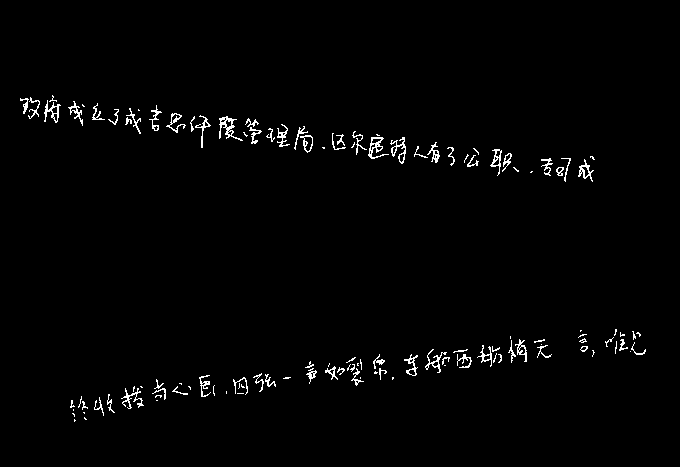 政府成立了成吉思汗陵管理局,达尔扈特人有了公职,吉可成
终收拨当心画,四弦一声如裂帛,东船西舫悄无言,唯见